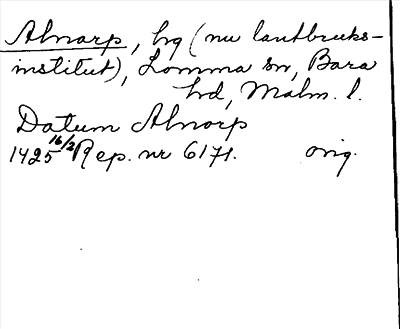 Alnarp, hg (nu lantbruks-
institut), Lomma sn, Bara
hd, Malm. l.
Datum Alnorp
1425 16/2 Rep. nr 6171. orig.